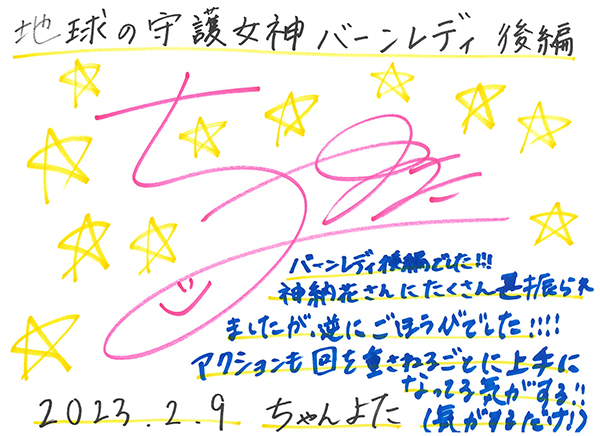 地球の守護女神 バーンレディ 後編
バーンレディ後編でした!!!
神納花さんにたくさん甚振られ
ましたが、逆にごほうびでした!!!!
アクションも回を重ねるごとに上手に
なってる気がする!!
(気がするだけ!)
2023.2.9 ちゃんよた